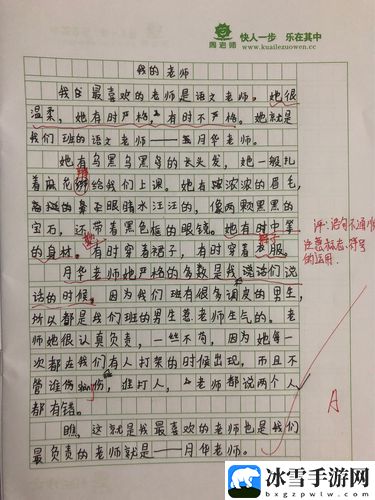 周老师
快人一步 乐在其中
www.kuailezuowen.cc
我的老师
我的最喜欢的老师是语文老师。她很
温柔，她有时严格，有时不严格。她就是
我们班的语文老师——月华老师。
她有乌黑乌黑的长头发，她一般扎
着麻花给我们上课。她有浓浓的眉毛，
眼睛水汪汪的，像两颗黑黑的
宝石，还带着黑色框的眼镜。她有时中等
的身材。有时穿着裙子，有时穿着服。
月华老师她严格的多数是我们说
话的时候。因为我们班有很多调皮的男生，
所以都是我们班的男生惹老师生气的。老
师她很认真负责，一丝不苟，因为她每一
次都在我们有人打架的时候出现，而且不
管谁伤shàng伤，谁打人，老师都说两个人
都有错。
瞧，这就是我最喜欢的老师也是我们
最负责的老师就是——月华老师。
评：语句不通顺
注意标点符号
的运用
A
冰雪手游网